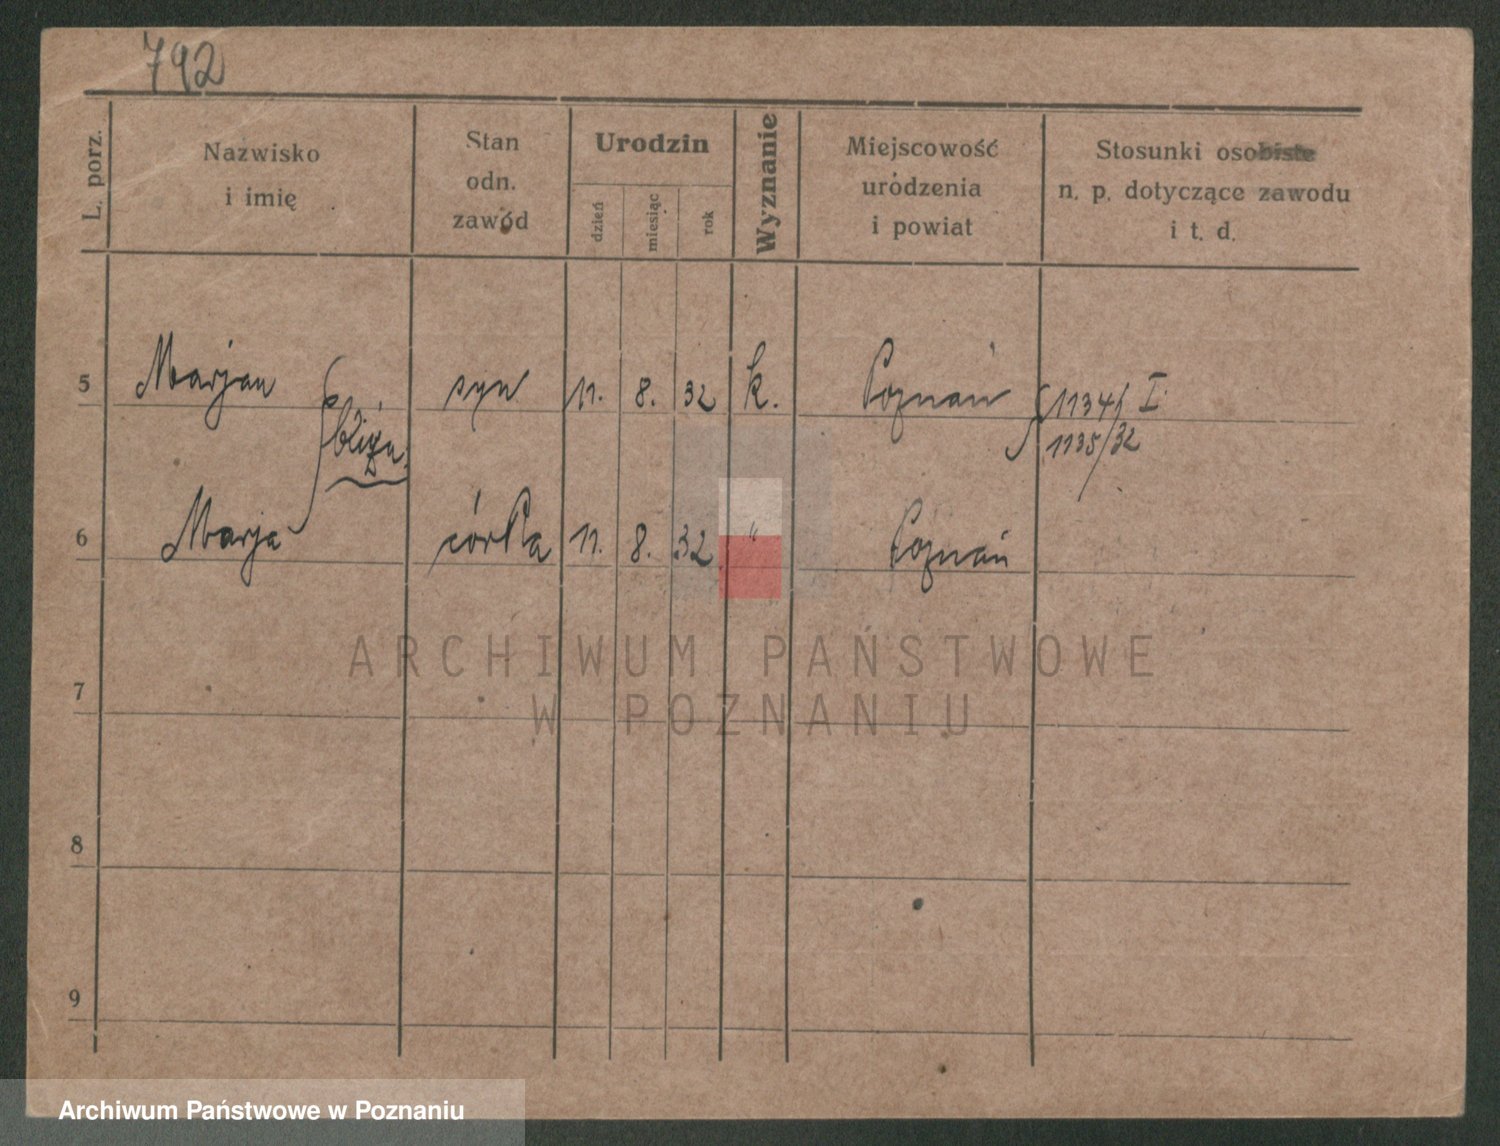 792
L. porz.
Nazwisko
i imię
Stan
odn.
zawód
Urodzin
dzień
miesiąc
rok
Wyznanie
Miejscowość
urodzenia
i powiat
Stosunki osobiste
n. p. dotyczące zawodu
i t. d.
5 Marjan syn 11. 8. 32 k. Poznań 1134/ I
bliźn. 1135/32
6 Marja córka 11. 8. 32 " Poznań
ARCHIWUM PAŃSTWOWE
W POZNANIU
7
8
9
Archiwum Państwowe w Poznaniu